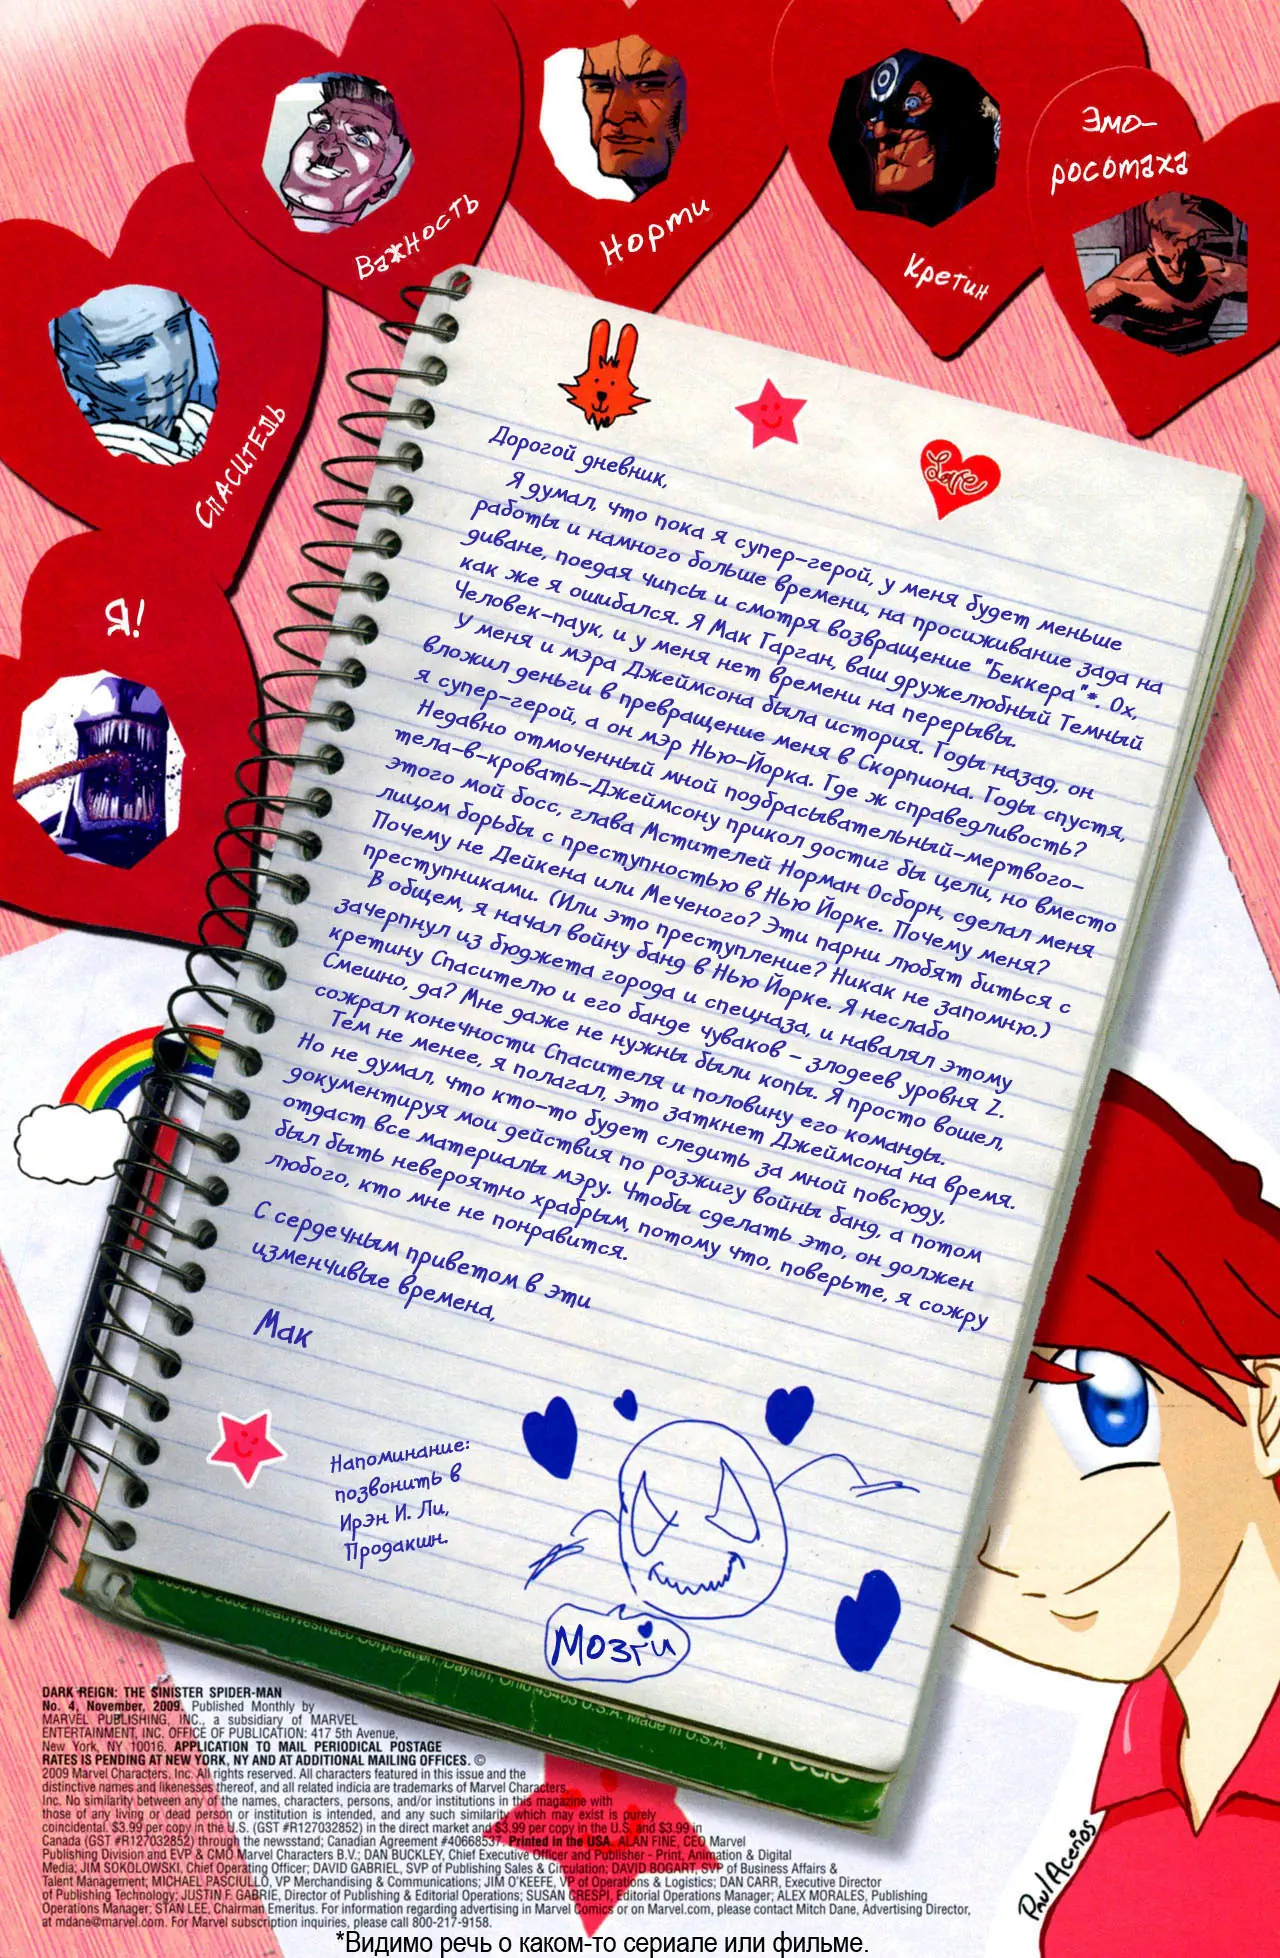 Эмо-
росомаха
Важность
Норти
Кретин
Спаситель
Я!
Love
Дорогой дневник,
Я думал, что пока я супер-герой, у меня будет меньше
работы и намного больше времени, на просиживание зада на
диване, поедая чипсы и смотря возвращение "Беккера"*. Ох,
как же я ошибался. Я Мак Гарган, ваш дружелюбный Темный
Человек-паук, и у меня нет времени на перерывы.
У меня и мэра Джеймсона была история. Годы назад, он
вложил деньги в превращение меня в Скорпиона. Годы спустя,
я супер-герой, а он мэр Нью-Йорка. Где ж справедливость?
Недавно отмоченный мной подбрасывательный-мертвого-
тела-в-кровать-Джеймсону прикол достиг бы цели, но вместо
этого мой босс, глава Мстителей Норман Осборн, сделал меня
лицом борьбы с преступностью в Нью Йорке. Почему меня?
Почему не Дейкена или Меченого? Эти парни любят биться с
преступниками. (Или это преступление? Никак не запомню.)
В общем, я начал войну банд в Нью Йорке. Я неслабо
зачерпнул из бюджета города и спецназа, и навалял этому
кретину Спасителю и его банде чуваков - злодеев уровня Z.
Смешно, да? Мне даже не нужны были копы. Я просто вошел,
сожрал конечности Спасителя и половину его команды.
Тем не менее, я полагал, это заткнет Джеймсона на время.
Но не думал, что кто-то будет следить за мной повсюду,
документируя мои действия по розжигу войны банд, а потом
отдаст все материалы мэру. Чтобы сделать это, он должен
был быть невероятно храбрым, потому что, поверьте, я сожру
любого, кто мне не понравится.
С сердечным приветом в эти
изменчивые времена,
Мак
Напоминание:
позвонить в
Ирэн И. Ли,
Продакшн.
Мозги
2002 MeadWestvaco Corporation, Dayton, Ohio 45463 U.S.A. Made in U.S.A.
DARK REIGN: THE SINISTER SPIDER-MAN
No. 4, November, 2009. Published Monthly by
MARVEL PUBLISHING, INC., a subsidiary of MARVEL
ENTERTAINMENT, INC. OFFICE OF PUBLICATION: 417 5th Avenue,
New York, NY 10016. APPLICATION TO MAIL PERIODICAL POSTAGE
RATES IS PENDING AT NEW YORK, NY AND AT ADDITIONAL MAILING OFFICES. ©
2009 Marvel Characters, Inc. All rights reserved. All characters featured in this issue and the
distinctive names and likenesses thereof, and all related indicia are trademarks of Marvel Characters,
Inc. No similarity between any of the names, characters, persons, and/or institutions in this magazine with
those of any living or dead person or institution is intended, and any such similarity which may exist is purely
coincidental. $3.99 per copy in the U.S. (GST #R127032852) in the direct market and $3.99 per copy in the U.S. and $3.99 in
Canada (GST #R127032852) through the newsstand; Canadian Agreement #40668537. Printed in the USA. ALAN FINE, CEO Marvel
Publishing Division and EVP & CMO Marvel Characters B.V.; DAN BUCKLEY, Chief Executive Officer and Publisher - Print, Animation & Digital
Media; JIM SOKOLOWSKI, Chief Operating Officer; DAVID GABRIEL, SVP of Publishing Sales & Circulation; DAVID BOGART, SVP of Business Affairs &
Talent Management; MICHAEL PASCIULLO, VP Merchandising & Communications; JIM O'KEEFE, VP of Operations & Logistics; DAN CARR, Executive Director
of Publishing Technology; JUSTIN F. GABRIE, Director of Publishing & Editorial Operations; SUSAN CRESPI, Editorial Operations Manager; ALEX MORALES, Publishing
Operations Manager; STAN LEE, Chairman Emeritus. For information regarding advertising in Marvel Comics or on Marvel.com, please contact Mitch Dane, Advertising Director,
at mdane@marvel.com. For Marvel subscription inquiries, please call 800-217-9158.
Paul Aceños
*Видимо речь о каком-то сериале или фильме.